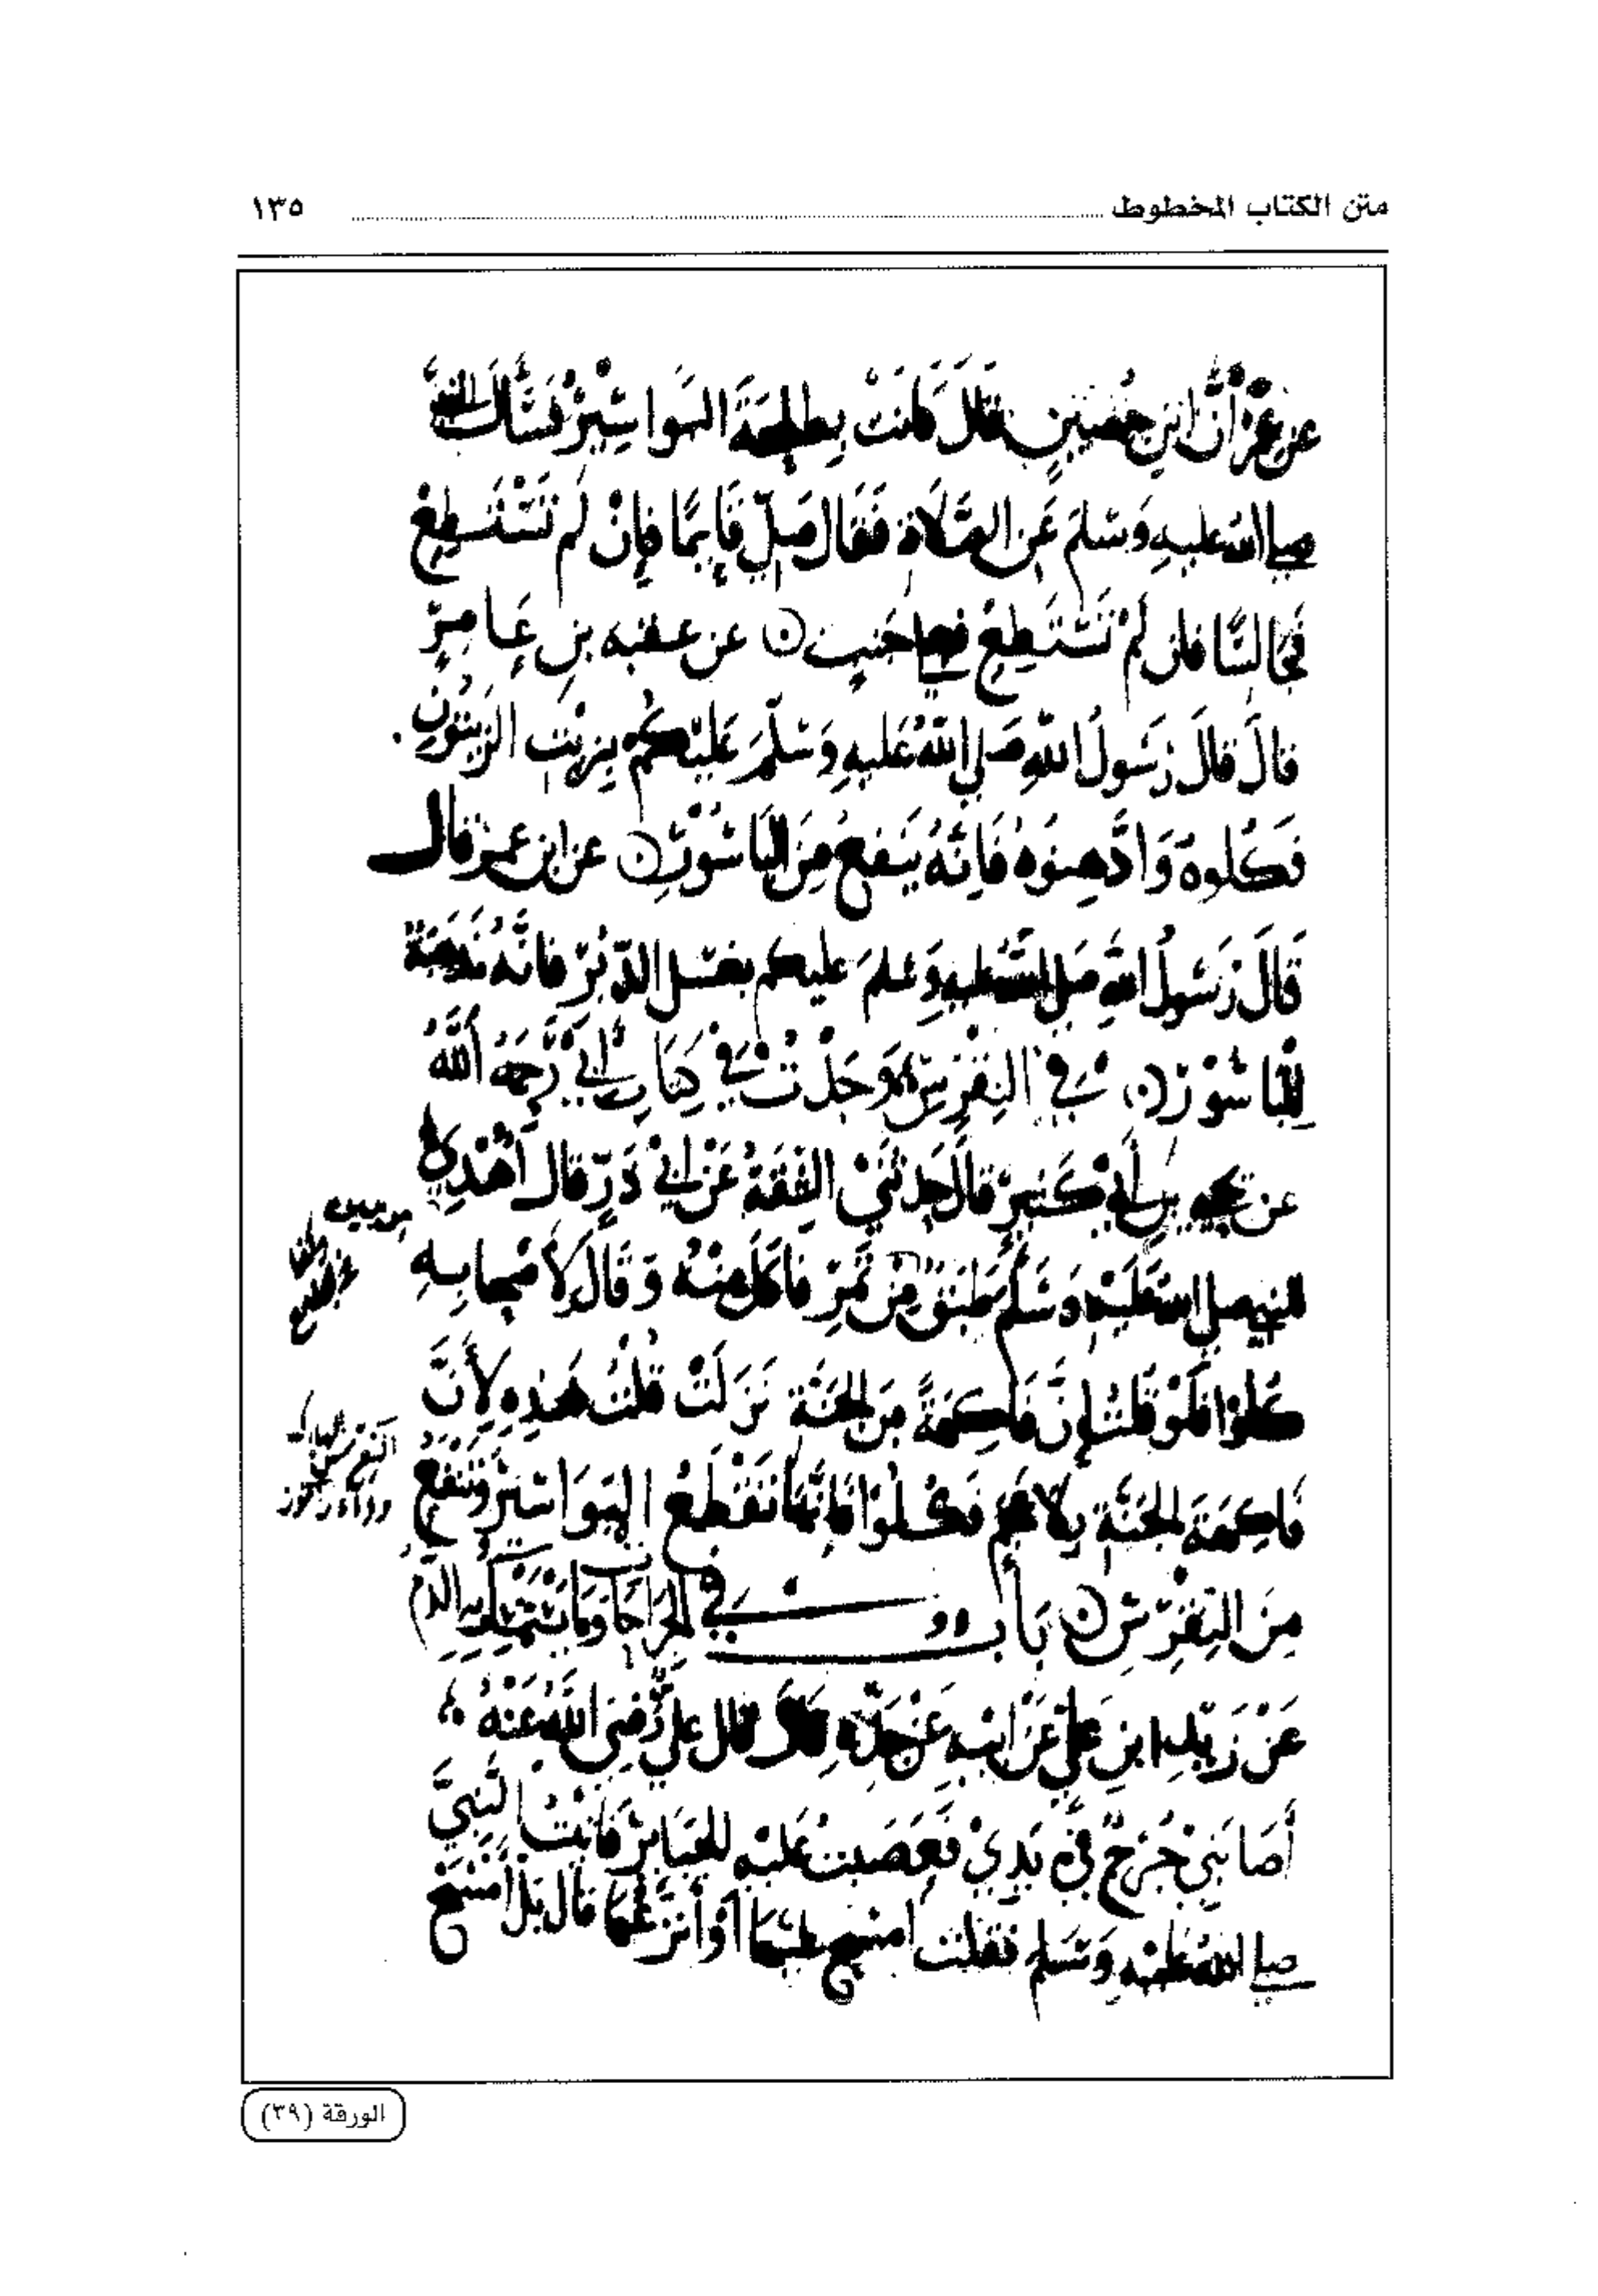 متن الكتاب المخطوط ١٣٥
عن عمران ابن حصين قال كانت بي البواسير فسألت النبي
صلى الله عليه وسلم عن الصلاة فقال صلّ قايمًا فإن لم تستطع
فجالسًا فان لم تستطع فعلى جنب ن عن عقبه بن عامر
قال قال رسول الله صلى الله عليه وسلم عليكم بزيت الزيتون
فكلوه وادهنوه فإنه ينفع من الباسور ن عن ابن عمر قال
قال رسول الله صلى الله عليه وسلم عليكم بغسل الدبر فانه مذهبة
للباسور ن في النقرس وجدت في كتاب أبي رحمه الله
عن يحيى بن أبي كثير قال حدثني الثقة عن ابي ذر قال أهدي
للنبي صلى الله عليه وسلم طبق من تمر فأكل منه وقال لاصحابه
كلوا فلو قلت إن فاكهة من الجنة نزلت قلت هذه لأن
فاكهة الجنة بلا عجم فكلوا فإنها تقطع البواسير وتنفع
من النقرس ن باب في الجراحات وما يستمسك به الدم
عن زيد ابن علي عن ابيه عن جده قال قال علي رضي الله عنه
أصابني جرح في يدي فعصبت عليه الجبائر فأتيت النبي
صلى الله عليه وسلم فقلت امسح عليها أو أنزعها قال بل امسح
الورقة (٣٩)